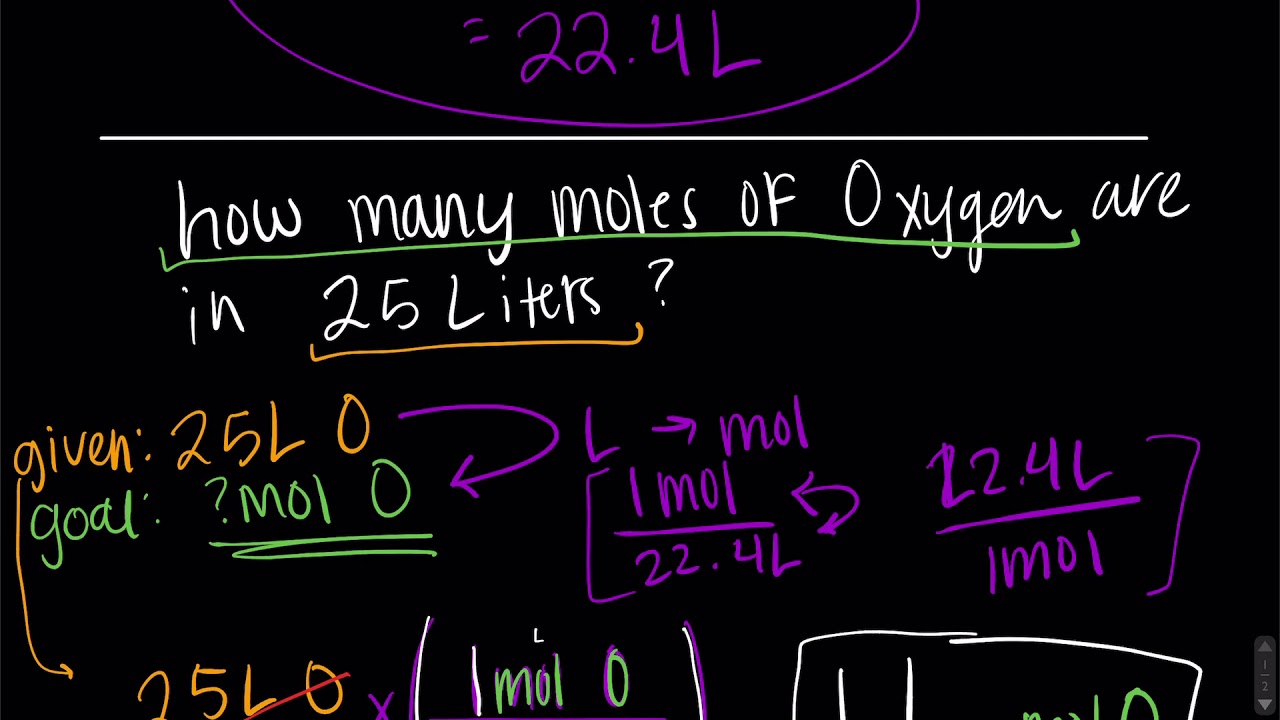 = 22.4L
how many moles of Oxygen are
in 25 Liters ?
given: 25L O
goal: ?mol O
L → mol
1mol
22.4L
22.4L
1mol
25L O x
1mol O
L
mol O
1
2